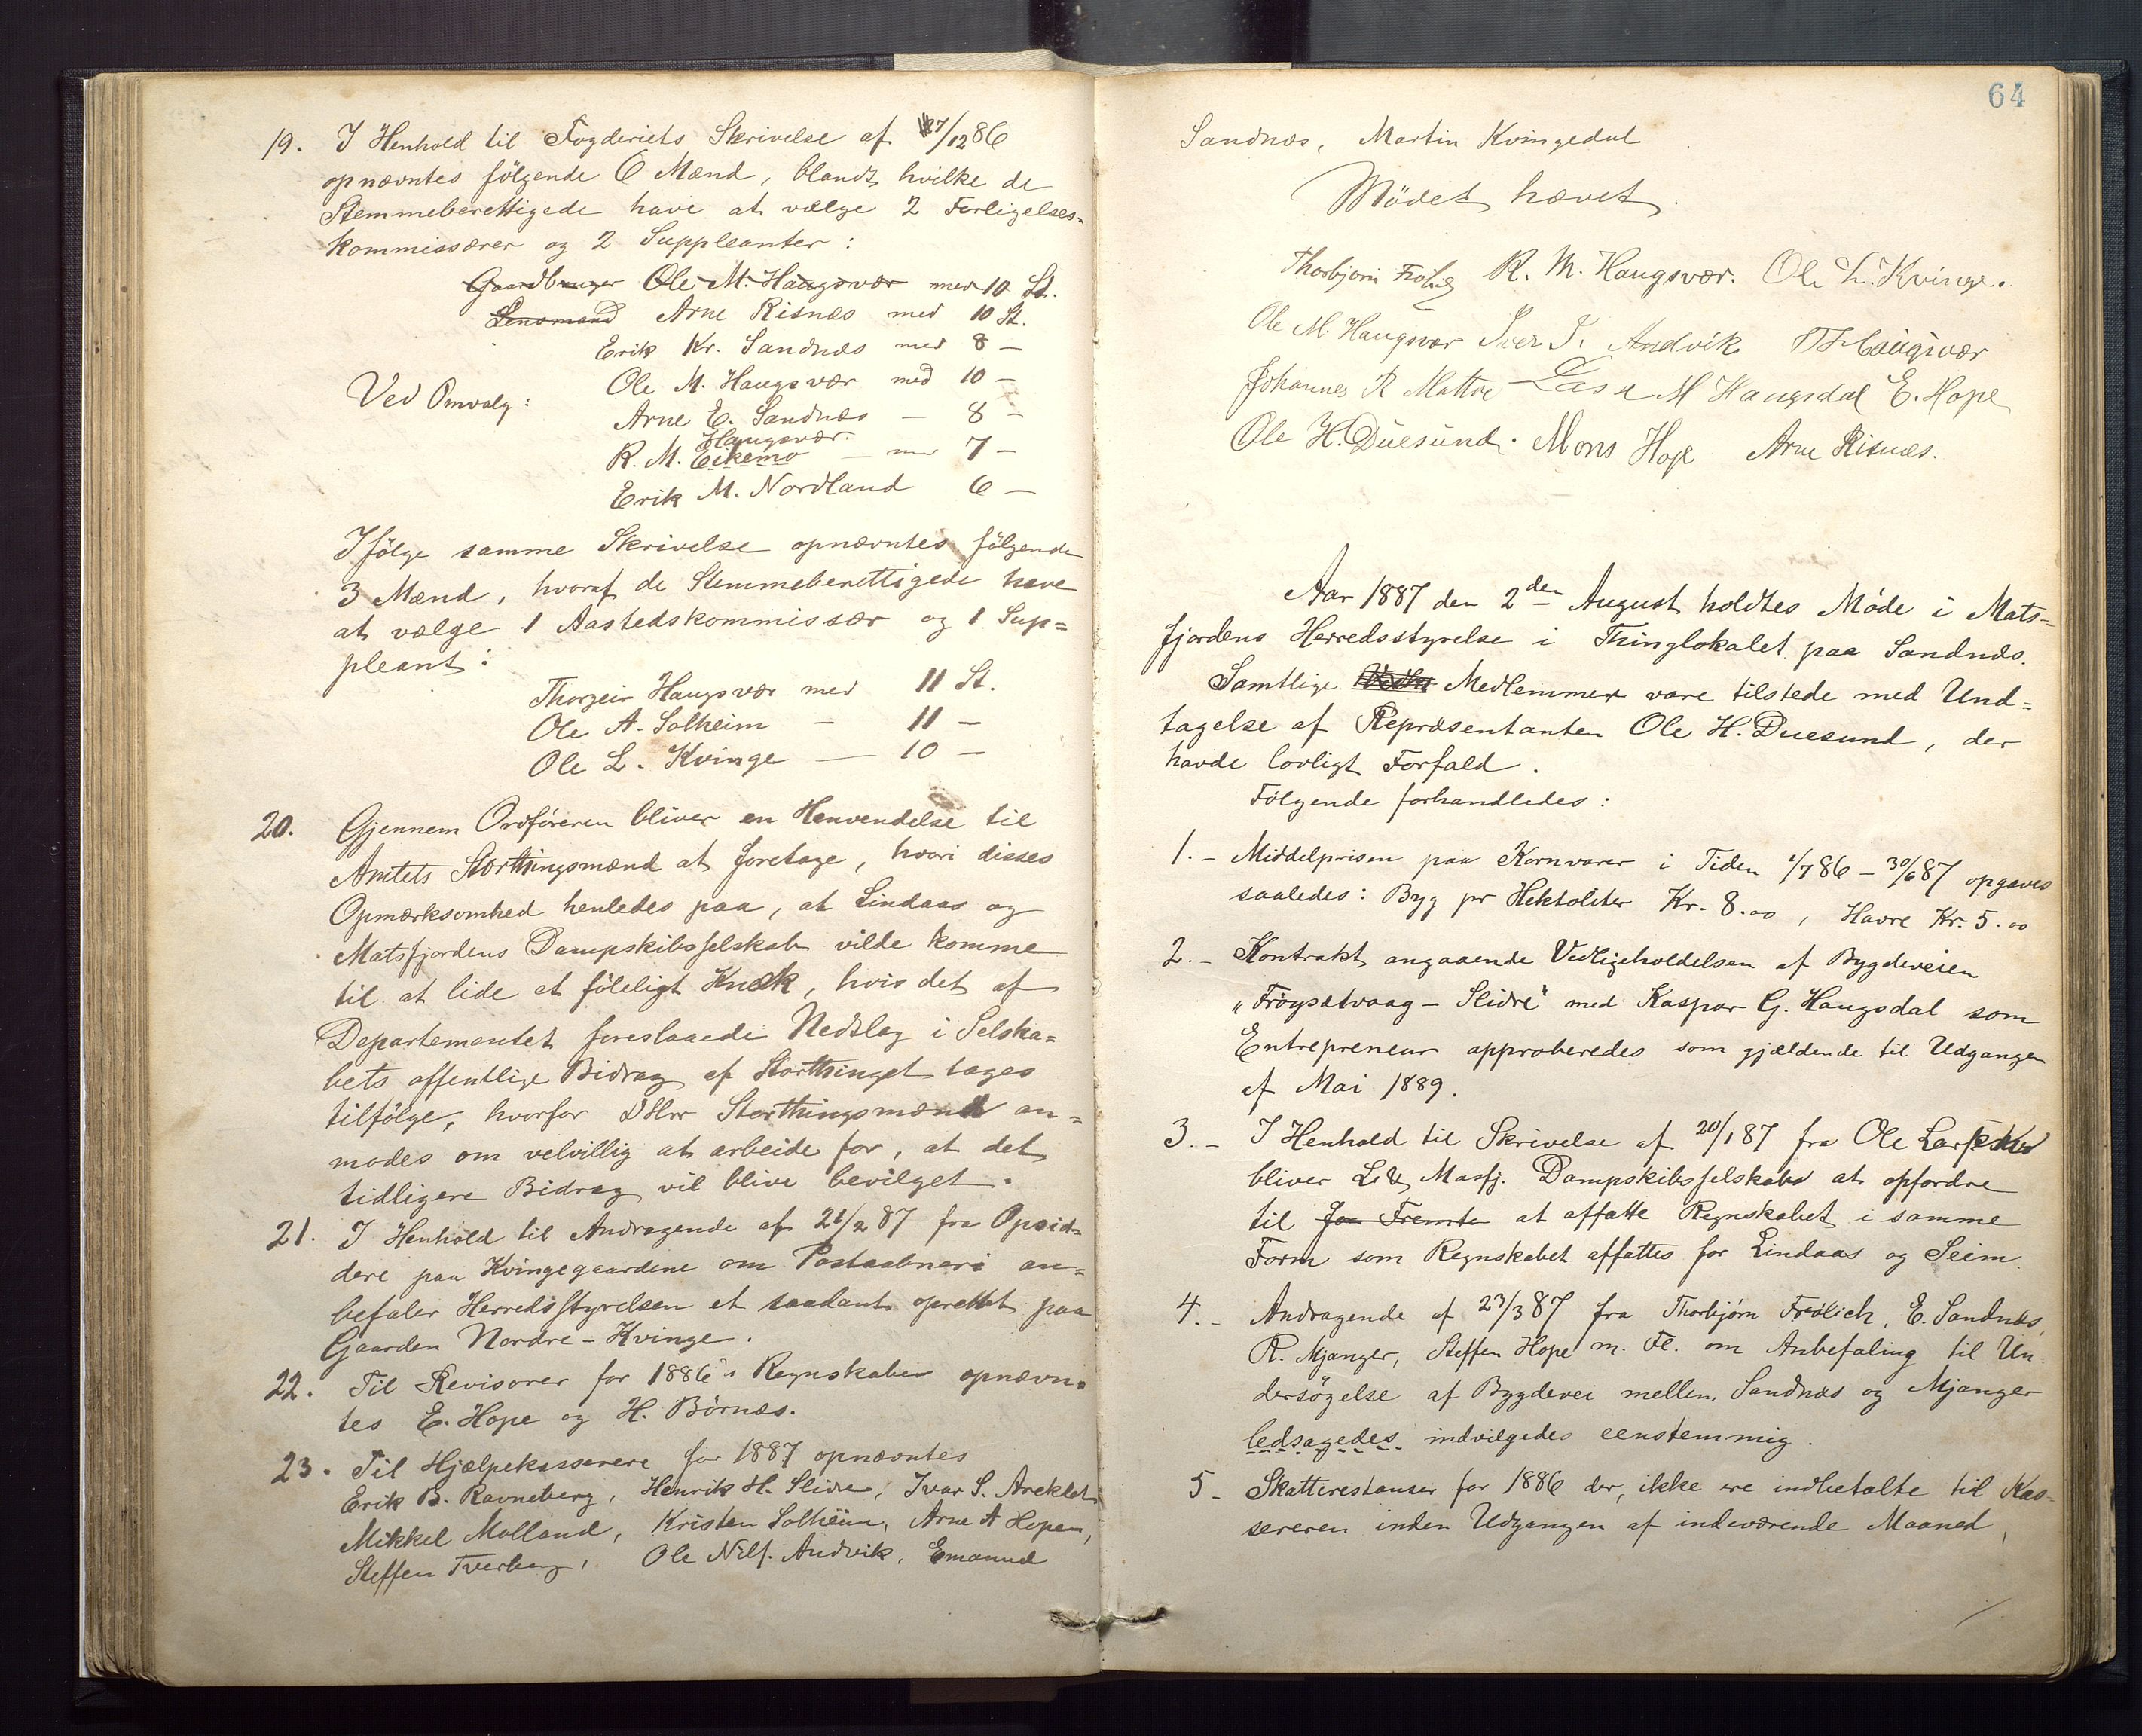 19. I Henhold til Fogderiets Skrivelse af 27/12 86
opnævntes følgende 6 Mænd, blandt hvilke de
Stemmeberettigede have at vælge 2 Forligelses=
kommissærer og 2 Suppleanter:
Gaardbruger Ole M. Haugsvær med 10 St.
Lensmand Arne Risnæs med 10 St.
Erik Kr. Sandnæs med 8 —
Ved Omvalg: Ole M. Haugsvær med 10 —
Arne E. Sandnæs — 8 —
Haugsvær.
R. M. Eikemo — med 7 —
Erik M. Nordland 6 —
Ifølge samme Skrivelse opnævntes følgende
3 Mænd, hvoraf de Stemmeberettigede have
at vælge 1 Aastedskommissær og 1 Sup=
pleant:
Thorgeir Haugsvær med 11 St.
Ole A. Solheim — 11 —
Ole L. Kvinge — 10 —
20. Gjennem Ordføreren bliver en Henvendelse til
Amtets Storthingsmænd at foretage, hvori disses
Opmærksomhed henledes paa, at Lindaas og
Matsfjordens Dampskibsselskab vilde komme
til at lide et føleligt Knæk, hvis det af
Departementet foreslaaede Nedslag i Selska=
bets offentlige Bidrag af Storthinget tages
tilfølge, hvorfor DHrr Storthingsmænd an=
modes om velvillig at arbeide for, at det
tidligere Bidrag vil blive bevilget.
21. I Henhold til Andragende af 21/2 87 fra Opsid=
dere paa Kvingegaardene om Postaabneri an=
befaler Herredsstyrelsen et saadant oprettet paa
Gaarden Nordre-Kvinge.
22. Til Revisorer for 1886's Regnskaber opnævn=
tes E. Hope og H. Børnæs.
23. Til Hjælpekasserere for 1887 opnævntes
Erik B. Ravneberg, Henrik H. Slire, Ivar S. Areklet
Mikkel Molland, Kristen Solheim, Arne A Hopen,
Steffen Tverberg, Ole Nils. Andvik, Emanuel
64
Sandnæs, Martin Kvingedal
Mødet hævet.
Thorbjørn Frølich R. M. Haugsvær. Ole L. Kvinge.
Ole M. Haugsvær Iver I. Andvik Haugsvær
Johannes R Mattre Lasse M Haugsdal E. Hope
Ole H. Duesund. Mons Hope Arne Risnæs.
Aar 1887 den 2den August holdtes Møde i Mats=
fjordens Herredsstyrelse i Thinglokalet paa Sandnæs.
Samtlige Medlemmer vare tilstede med Und=
tagelse af Repræsentanten Ole H. Duesund, der
havde lovligt Forfald.
Følgende forhandledes:
1. - Middelprisen paa Kornvarer i Tiden 1/7 86 - 30/6 87 opgaves
saaledes: Byg pr Hektoliter Kr. 8.00, Havre Kr. 5.00
2. - Kontrakt angaaende Vedligeholdelsen af Bygdeveien
"Frøysetvaag - Slidre" med Kaspar G. Haugsdal som
Entrepreneur approberedes som gjældende til Udgangen
af Mai 1889.
3. - I Henhold til Skrivelse af 20/1 87 fra Ole Lars
bliver L. & Masfj. Dampskibsselskab at opfordre
til at affatte Regnskabet i samme
Form som Regnskabet affattes for Lindaas og Seim.
4. - Andragende af 23/3 87 fra Thorbjørn Frølich, E. Sandnæs,
R. Mjanger, Steffen Hope m. Fl. om Anbefaling til Un-
dersøgelse af Bygdevei mellem Sandnæs og Mjanger
ledsagedes indvilgedes eenstemmig.
5 - Skatterestanser for 1886 der, ikke ere indbetalte til Kas-
sereren inden Udgangen af indeværende Maaned,